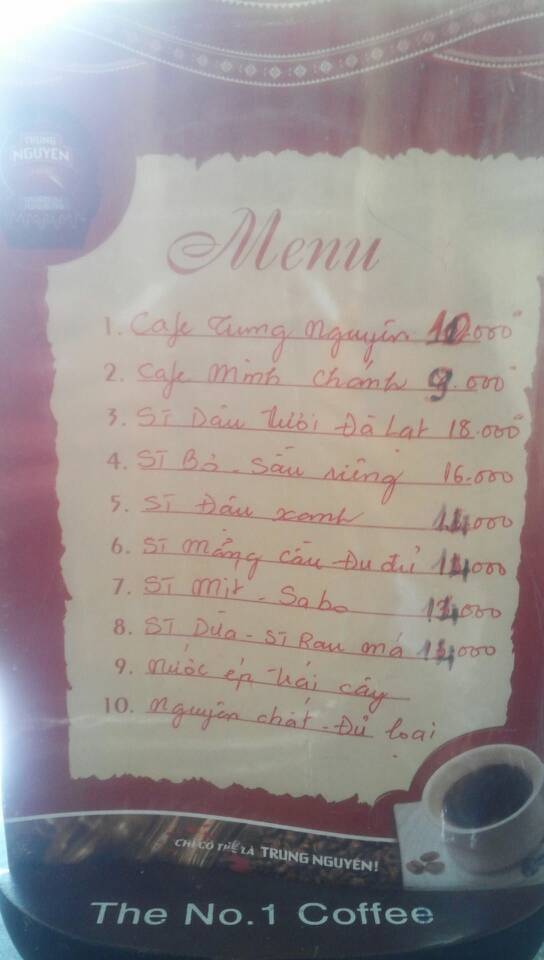 TRUNG
NGUYEN
Menu
1. Cafe Trung Nguyên 10.000đ
2. Cafe Minh Chánh 9.000đ
3. SĨ Dâu tươi Đà Lạt 18.000đ
4. SĨ Bò - Sầu riêng 16.000
5. SĨ Đậu xanh 14,000
6. SĨ Mãng cầu Đu đủ 14,000
7. SĨ Mít - Sabo 14,000
8. SĨ Dừa - SĨ Rau má 14,000
9. Nước ép trái cây
10. Nguyên chất - Đủ loại
CHỈ CÓ THỂ LÀ TRUNG NGUYEN!
The No.1 Coffee